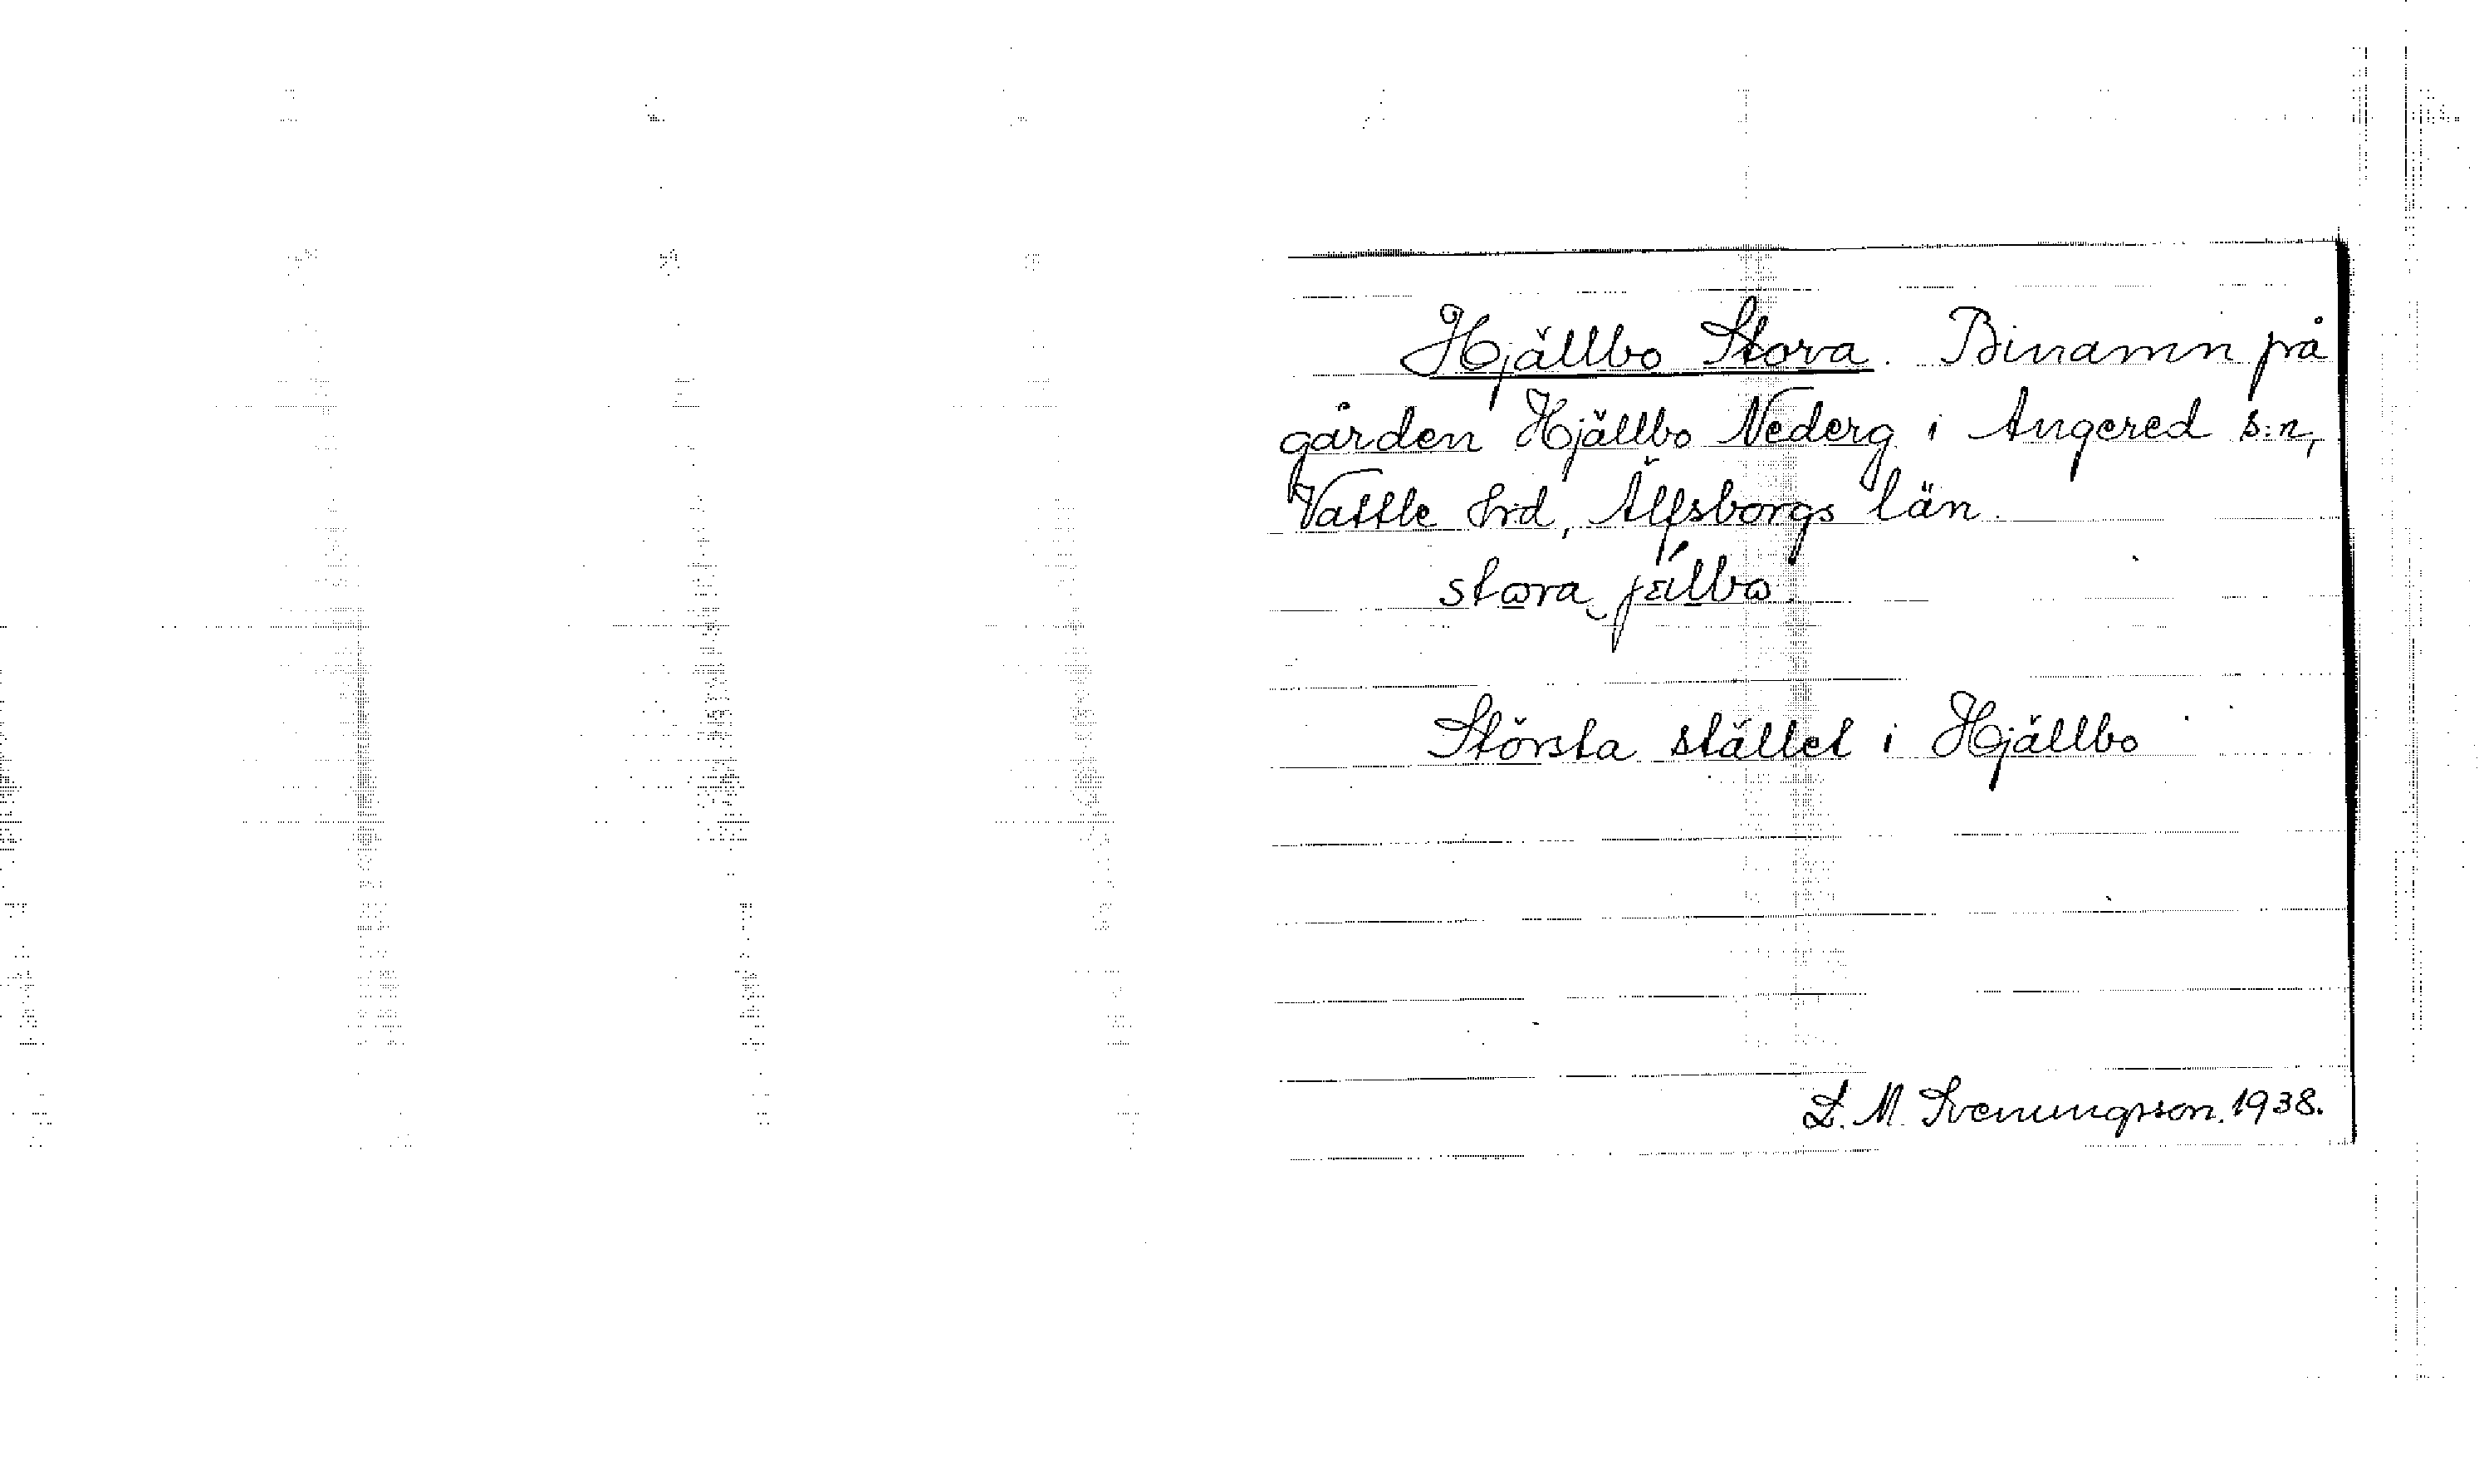 Hjällbo Stora. Binamn på
gården Hjällbo Nederg i Angered s:n,
Vattle hrd, Älfsborgs län.
stora jälbo
Största stället i Hjällbo
L. M. Svenungsson. 1938.